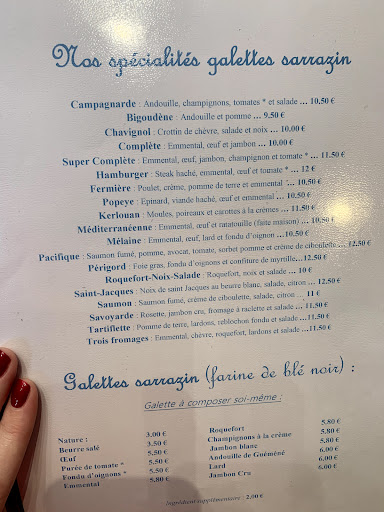 Nos spécialités galettes sarrazin
Campagnarde : Andouille, champignons, tomates * et salade ... 10,50 €
Bigoudène : Andouille et pomme ... 9.50 €
Chavignol : Crottin de chèvre, salade et noix ... 10.00 €
Complète : Emmental, œuf et jambon ... 10.00 €
Super Complète : Emmental, œuf, jambon, champignon et tomate * ... 11.50 €
Hamburger : Steak haché, emmental, œuf et tomate * ... 12 €
Fermière : Poulet, crème, pomme de terre et emmental ... 10.50 €
Popeye : Epinard, viande haché, œuf et emmental ... 10.50 €
Kerlouan : Moules, poireaux et carottes à la crème ... 11.50 €
Méditerranéenne : Emmental, œuf et ratatouille (faite maison) ... 10.50 €
Mélaine : Emmental, œuf, lard et fondu d'oignon ...10.50 €
Pacifique : Saumon fumé, pomme, avocat, tomate, sorbet pomme et crème de ciboulette... 12.50 €
Périgord : Foie gras, fondu d'oignons et confiture de myrtille...12.50 €
Roquefort-Noix-Salade : Roquefort, noix et salade ... 10 €
Saint-Jacques : Noix de saint Jacques au beurre blanc, salade, citron ... 12.50 €
Saumon : Saumon fumé, crème de ciboulette, salade, citron ... 11 €
Savoyarde : Rosette, jambon cru, fromage à raclette et salade ...11.50 €
Tartiflette : Pomme de terre, lardons, reblochon fondu et salade ...11.50 €
Trois fromages : Emmental, chèvre, roquefort, lardons et salade ...11.50 €
Galettes sarrazin (farine de blé noir) :
Galette à composer soi-même :
Nature : 3.00 €
Beurre salé 3.50 €
Œuf 5.50 €
Purée de tomate * 5.50 €
Fondu d'oignons * 5.50 €
Emmental 5.80 €
Roquefort 5.80 €
Champignons à la crème 5.80 €
Jambon blanc 5.80 €
Andouille de Guéméné 6.00 €
Lard 6.00 €
Jambon Cru 6,00 €
Ingrédient supplémentaire : 2.00 €